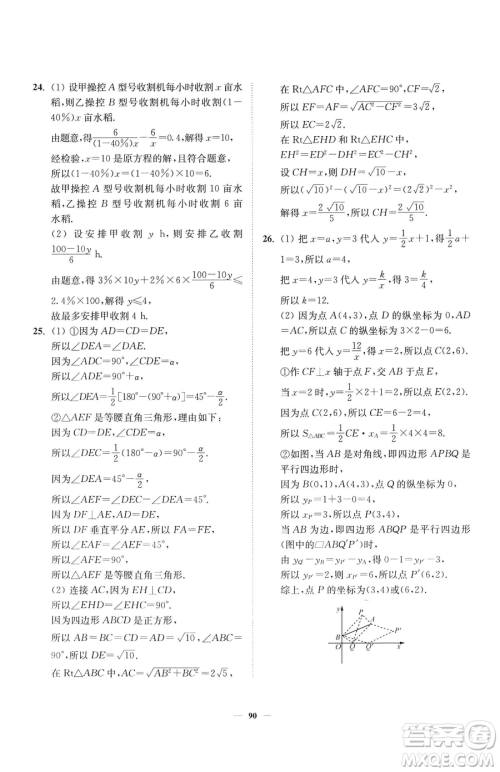 24. (1) 设甲操控 A 型号收割机每小时收割 x 亩水
稻,则乙操控 B 型号收割机每小时收割(1-
40%)x 亩水稻.
由题意,得 6/((1-40%)x) - 6/x = 0.4,解得 x=10,
经检验,x=10 是原方程的解,且符合题意,
所以(1-40%)x=(1-40%)×10=6.
故甲操控 A 型号收割机每小时收割 10 亩水
稻,乙操控 B 型号收割机每小时收割 6 亩
水稻.
(2) 设安排甲收割 y h,则安排乙收割
(100-10y)/6 h.
由题意,得 3%×10y+2%×6×(100-10y)/6≤
2.4%×100,解得 y≤4.
故最多安排甲收割 4 h.
25. (1) ①因为 AD=CD=DE,
所以∠DEA=∠DAE.
因为∠ADC=90°,∠CDE=α,
所以∠ADE=90°+α,
所以∠DEA=1/2[180°-(90°+α)]=45°-α/2.
②△AEF 是等腰直角三角形.理由如下:
因为 CD=DE,∠CDE=α,
所以∠DEC=1/2(180°-α)=90°-α/2.
因为∠DEA=45°-α/2,
所以∠AEF=∠DEC-∠DEA=45°.
因为 DF⊥AC,AD=CD,
所以 DF 垂直平分 AC,所以 AF=CF,
所以∠EAF=∠AEF=45°,
所以∠AFE=90°,
所以△AEF 是等腰直角三角形.
(2) 连接 AC,因为 EH⊥CD,
所以∠EHD=∠EHC=90°.
因为四边形 ABCD 为正方形,
所以 CD=BC=AB=√10,
所以 DE=√10.
在 Rt△ABC 中,AC=√(AB²+BC²)=2√5,
在 Rt△AFC 中,∠AFC=90°,AF=√2,
所以 CF=√(AC²-CF²)=3√2,
所以 EC=2√2.
在 Rt△DEH 和 Rt△EHC 中,
EH²=ED²-DH²=EC²-CH²,
设 CH=x,则 DH=√10-x,
所以(√10)²-(√10-x)²=(2√2)²-x²,
解得 x=2√10/5,所以 CH=2√10/5.
26. (1) 把 x=a,y=3 代入 y=1/2x+1,得 1/2a+
1=3,解得 a=4.
把 x=4,y=3 代入 y=k/x,得 3=k/4,解得
k=12.
(2) 因为点 A(4,3),点 D 的纵坐标为 0,
所以点 C 的纵坐标为 3×2-0=6.
把 y=6 代入 y=12/x,得 x=2,所以点 C(2,6).
①作 CF⊥x 轴于点 F,交 AB 于点 E,
当 x=2 时,y=1/2×2+1=2,所以点 E(2,2).
因为点 C(2,6),所以 CE=6-2=4,
所以 S△ABC=1/2CE·xA=1/2×4×4=8.
②如图,当 AB 是对角线,即四边形 APBQ 是
平行四边形时,
因为点 A(4,3),B(0,1),点 Q 的纵坐标为 0,
所以 yP=1+3-0=4.
当 y=4 时,4=12/x,所以 x=3,所以点 P(3,4).
当 AB 为边,即四边形 ABQP 是平行四边形
(图中的□ABQ′P′)时,
由 yQ′-yB=yP′-yA,得 0-1=yP′-3,
所以 yP′=2,所以 x=12/2=6,所以点 P′(6,2).
综上,点 P 的坐标为(3,4)或(6,2).
90